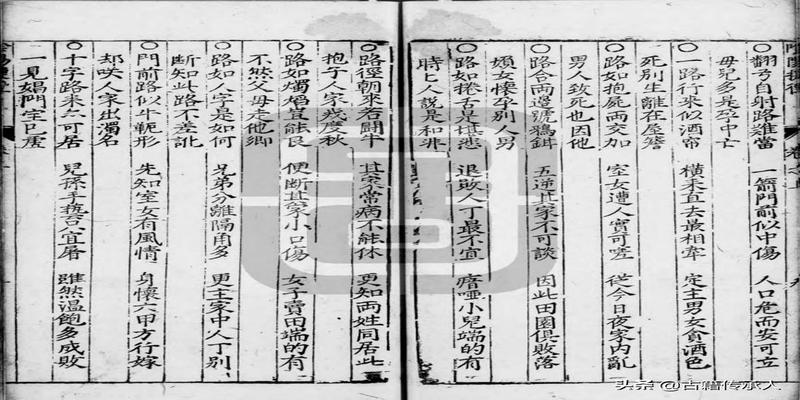 ○翻弓自射路難當　一箭門前似中傷　人口危而安可立
母兒多是惡中亡
○一路行來似酒帘　橫来直去最相牽　定主男女貪酒色
死別生離在屋簷
○路如抱屍両交加　室女遭人實可嗟　從今日夜家内亂
男人致死也因他
○路合両邉號鵶鉺　五逆其家不可談　因此田園俱敗落
嬪女懷孕別人男
○路如捲舌是堪悲　退敗人丁最不宜　瘖啞小兒端的有
時匕人説是和非
○路徑朝來若鬪牛　其家常病不能休　更知両姓同居此
抱子人家幾度秋
○路如燭焰豈能良　便断其家小口傷　女子賣田端的有
不然父母走他鄉
○路如人字是如何　兄弟分離隔角多　更主家中人丁別
断知此路不差訛
○門前路似牛軛形　先知室女有風情　身懷六甲方行嫁
却咲人家出濁名
○十字路来六可居　兒孫手執宜屠　雖然温飽多成敗
一見娼門定已居
头条@古籍传承人